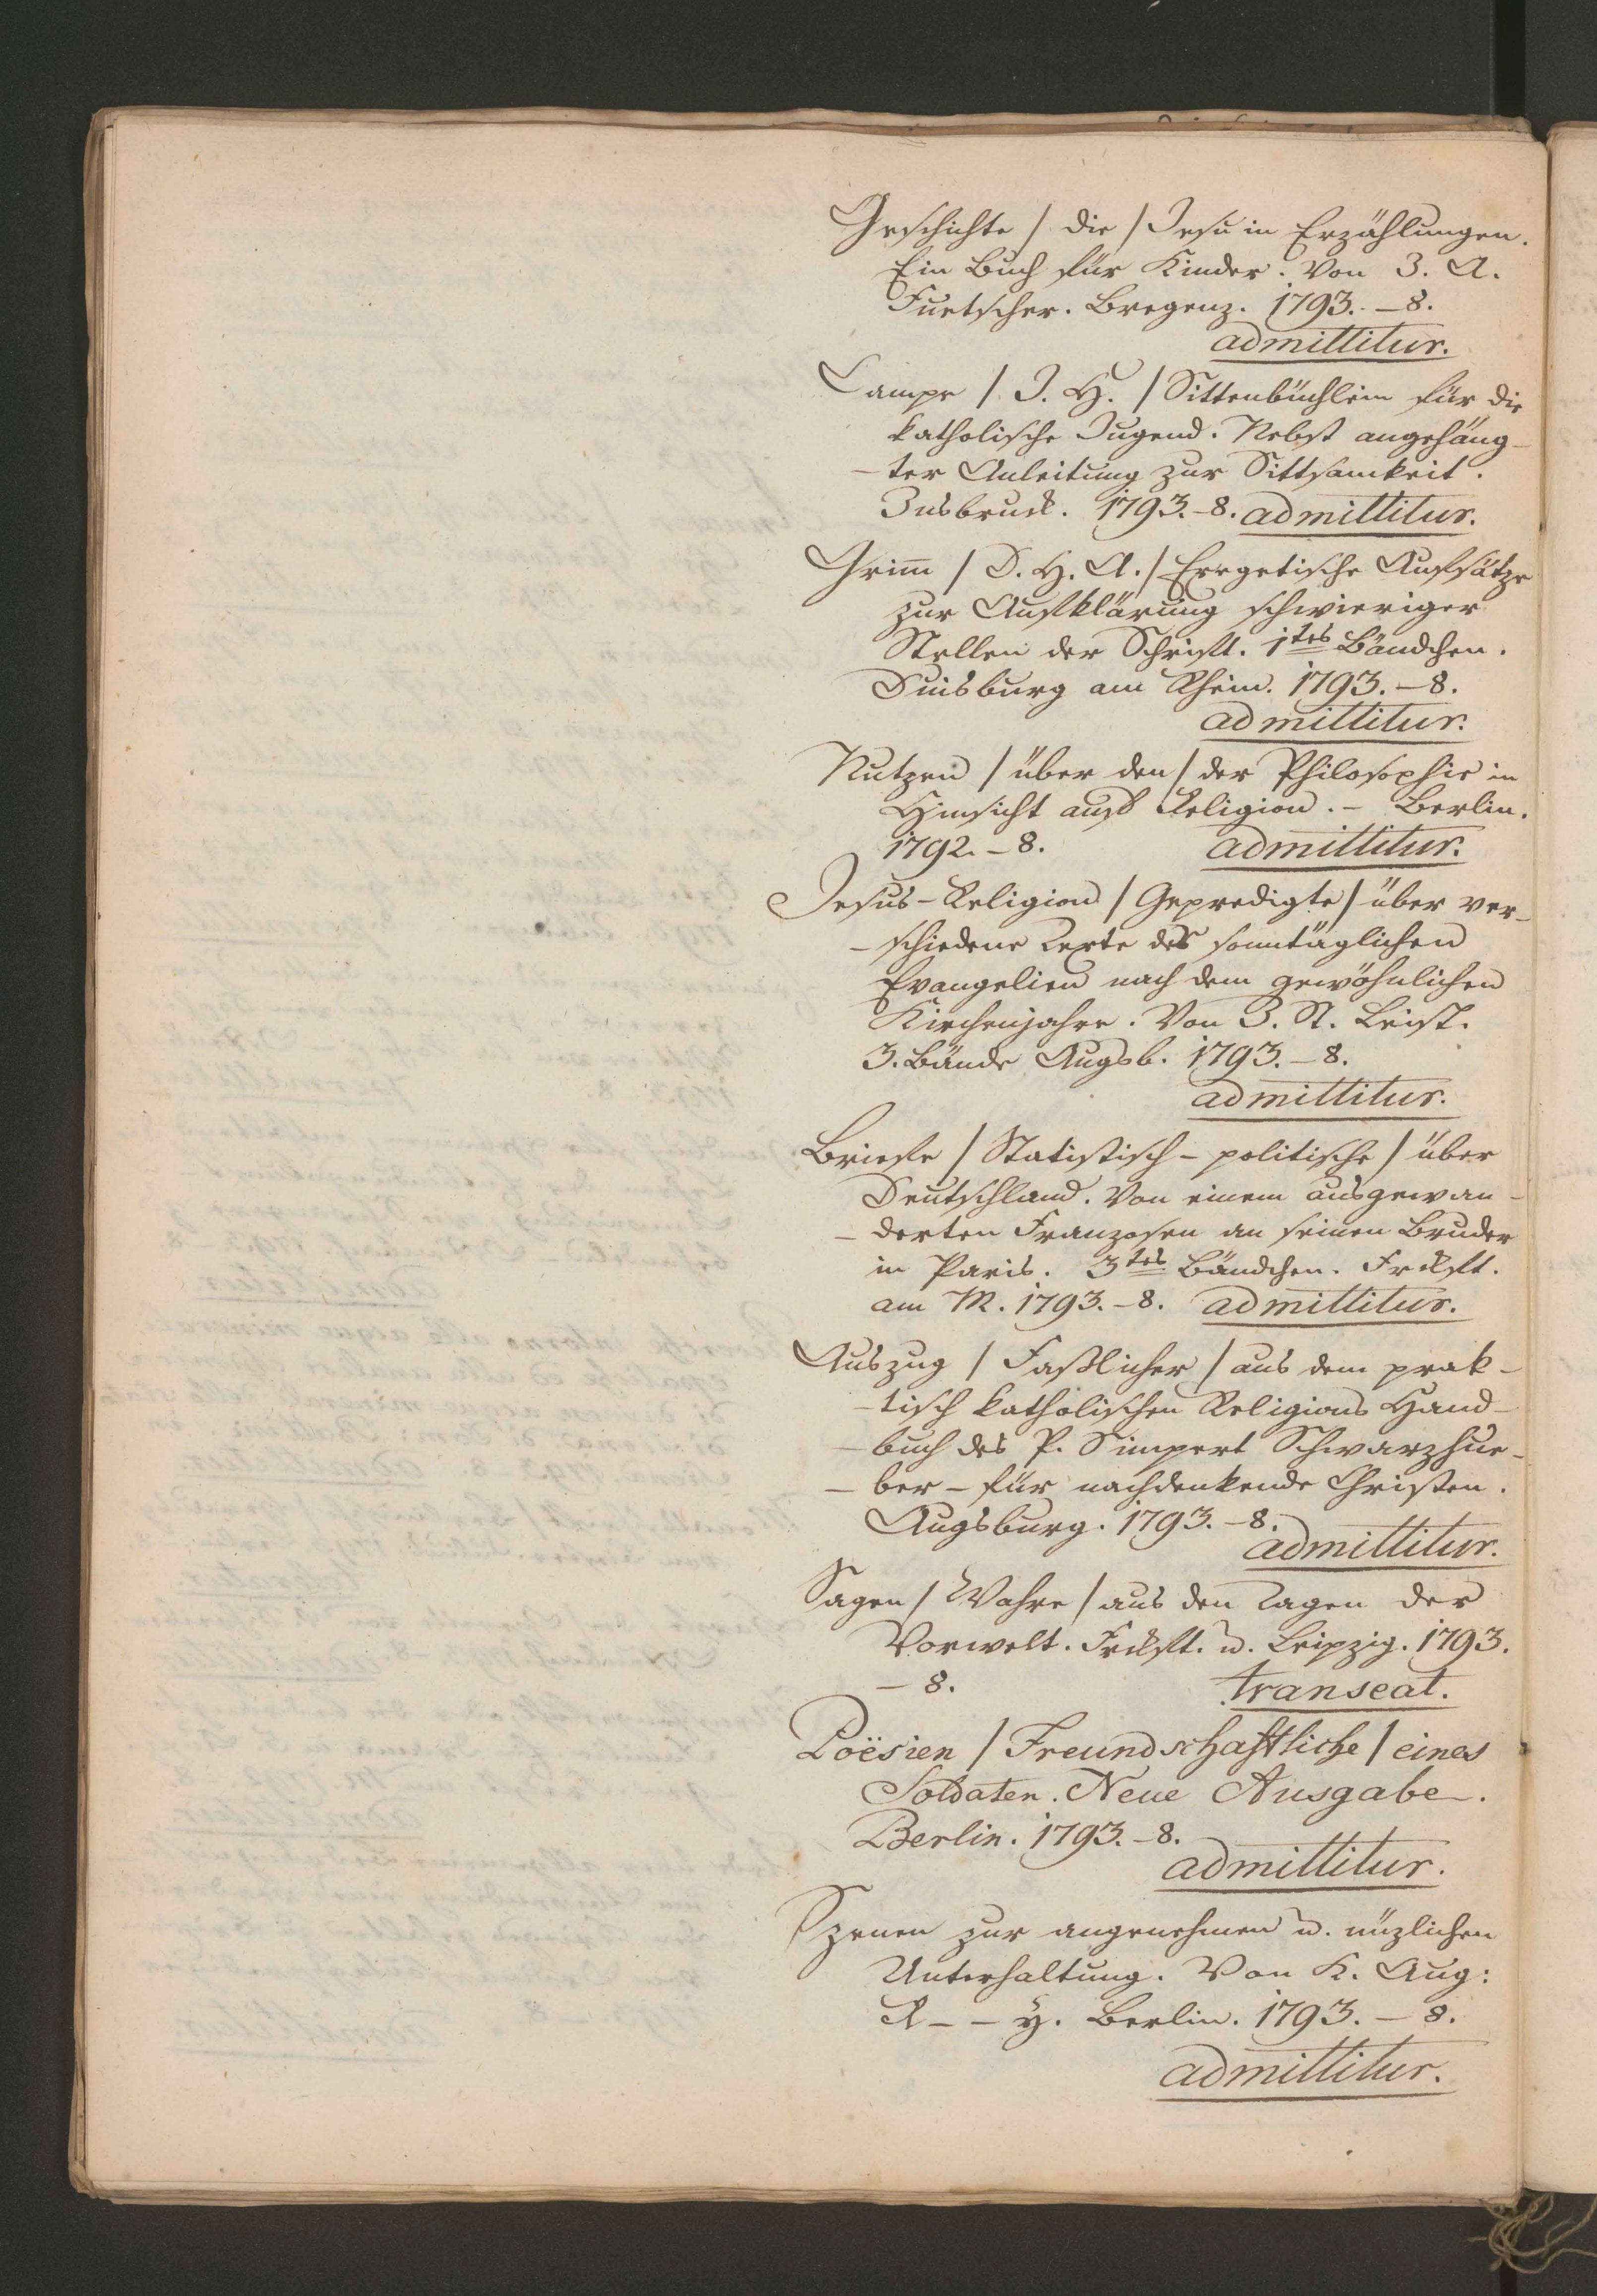 Geschichte / die / Jesu in Erzählungen.
Ein Buch für Kinder. Von J. A.
Fuetscher. Bregenz. 1793. - 8.
admittitur.
Campe / J. H. / Sittenbüchlein für die
katholische Jugend. Nebst angehäng-
-ter Anleitung zur Sittsamkeit.
Insbruck. 1793. - 8. admittitur.
Grim̅ / D. H. A. / Exegetische Aufsätze
zur Aufklärung schwieriger
Stellen der Schrift. 1tes Bändchen.
Duisburg am Rhein. 1793. - 8.
admittitur.
Nutzen / über den / der Philosophie in
Hinsicht auf Religion. - Berlin.
1792. - 8. admittitur.
Jesus-Religion / Gepredigte / über ver-
-schiedene Texte der sonntäglichen
Evangelien nach dem gewöhnlichen
Kirchenjahre. Von J. St. Leist.
3. Bände Augsb. 1793. - 8.
admittitur.
Briefe / Statistisch-politische / über
Deutschland. Von einem ausgewan-
-derten Franzosen an seinen Bruder
in Paris. 3tes Bändchen. Frckft.
am M. 1793. - 8. admittitur.
Auszug / Faßlicher / aus dem prak-
-tisch katholischen Religions Hand-
-buch des P. Simpert Schwarzhue-
-ber - für nachdenkende Christen.
Augsburg. 1793. - 8.
admittitur.
Sagen / Wahre / aus den Tagen der
Vorwelt. Frckft. u. Leipzig. 1793.
- 8. transeat.
Poësien / Freundschaftliche / eines
Soldaten. Neue Ausgabe.
Berlin. 1793. - 8.
admittitur.
Szenen zur angenehmen u. nüzlichen
Unterhaltung. Von K. Aug:
R - - y. Berlin. 1793. - 8.
admittitur.